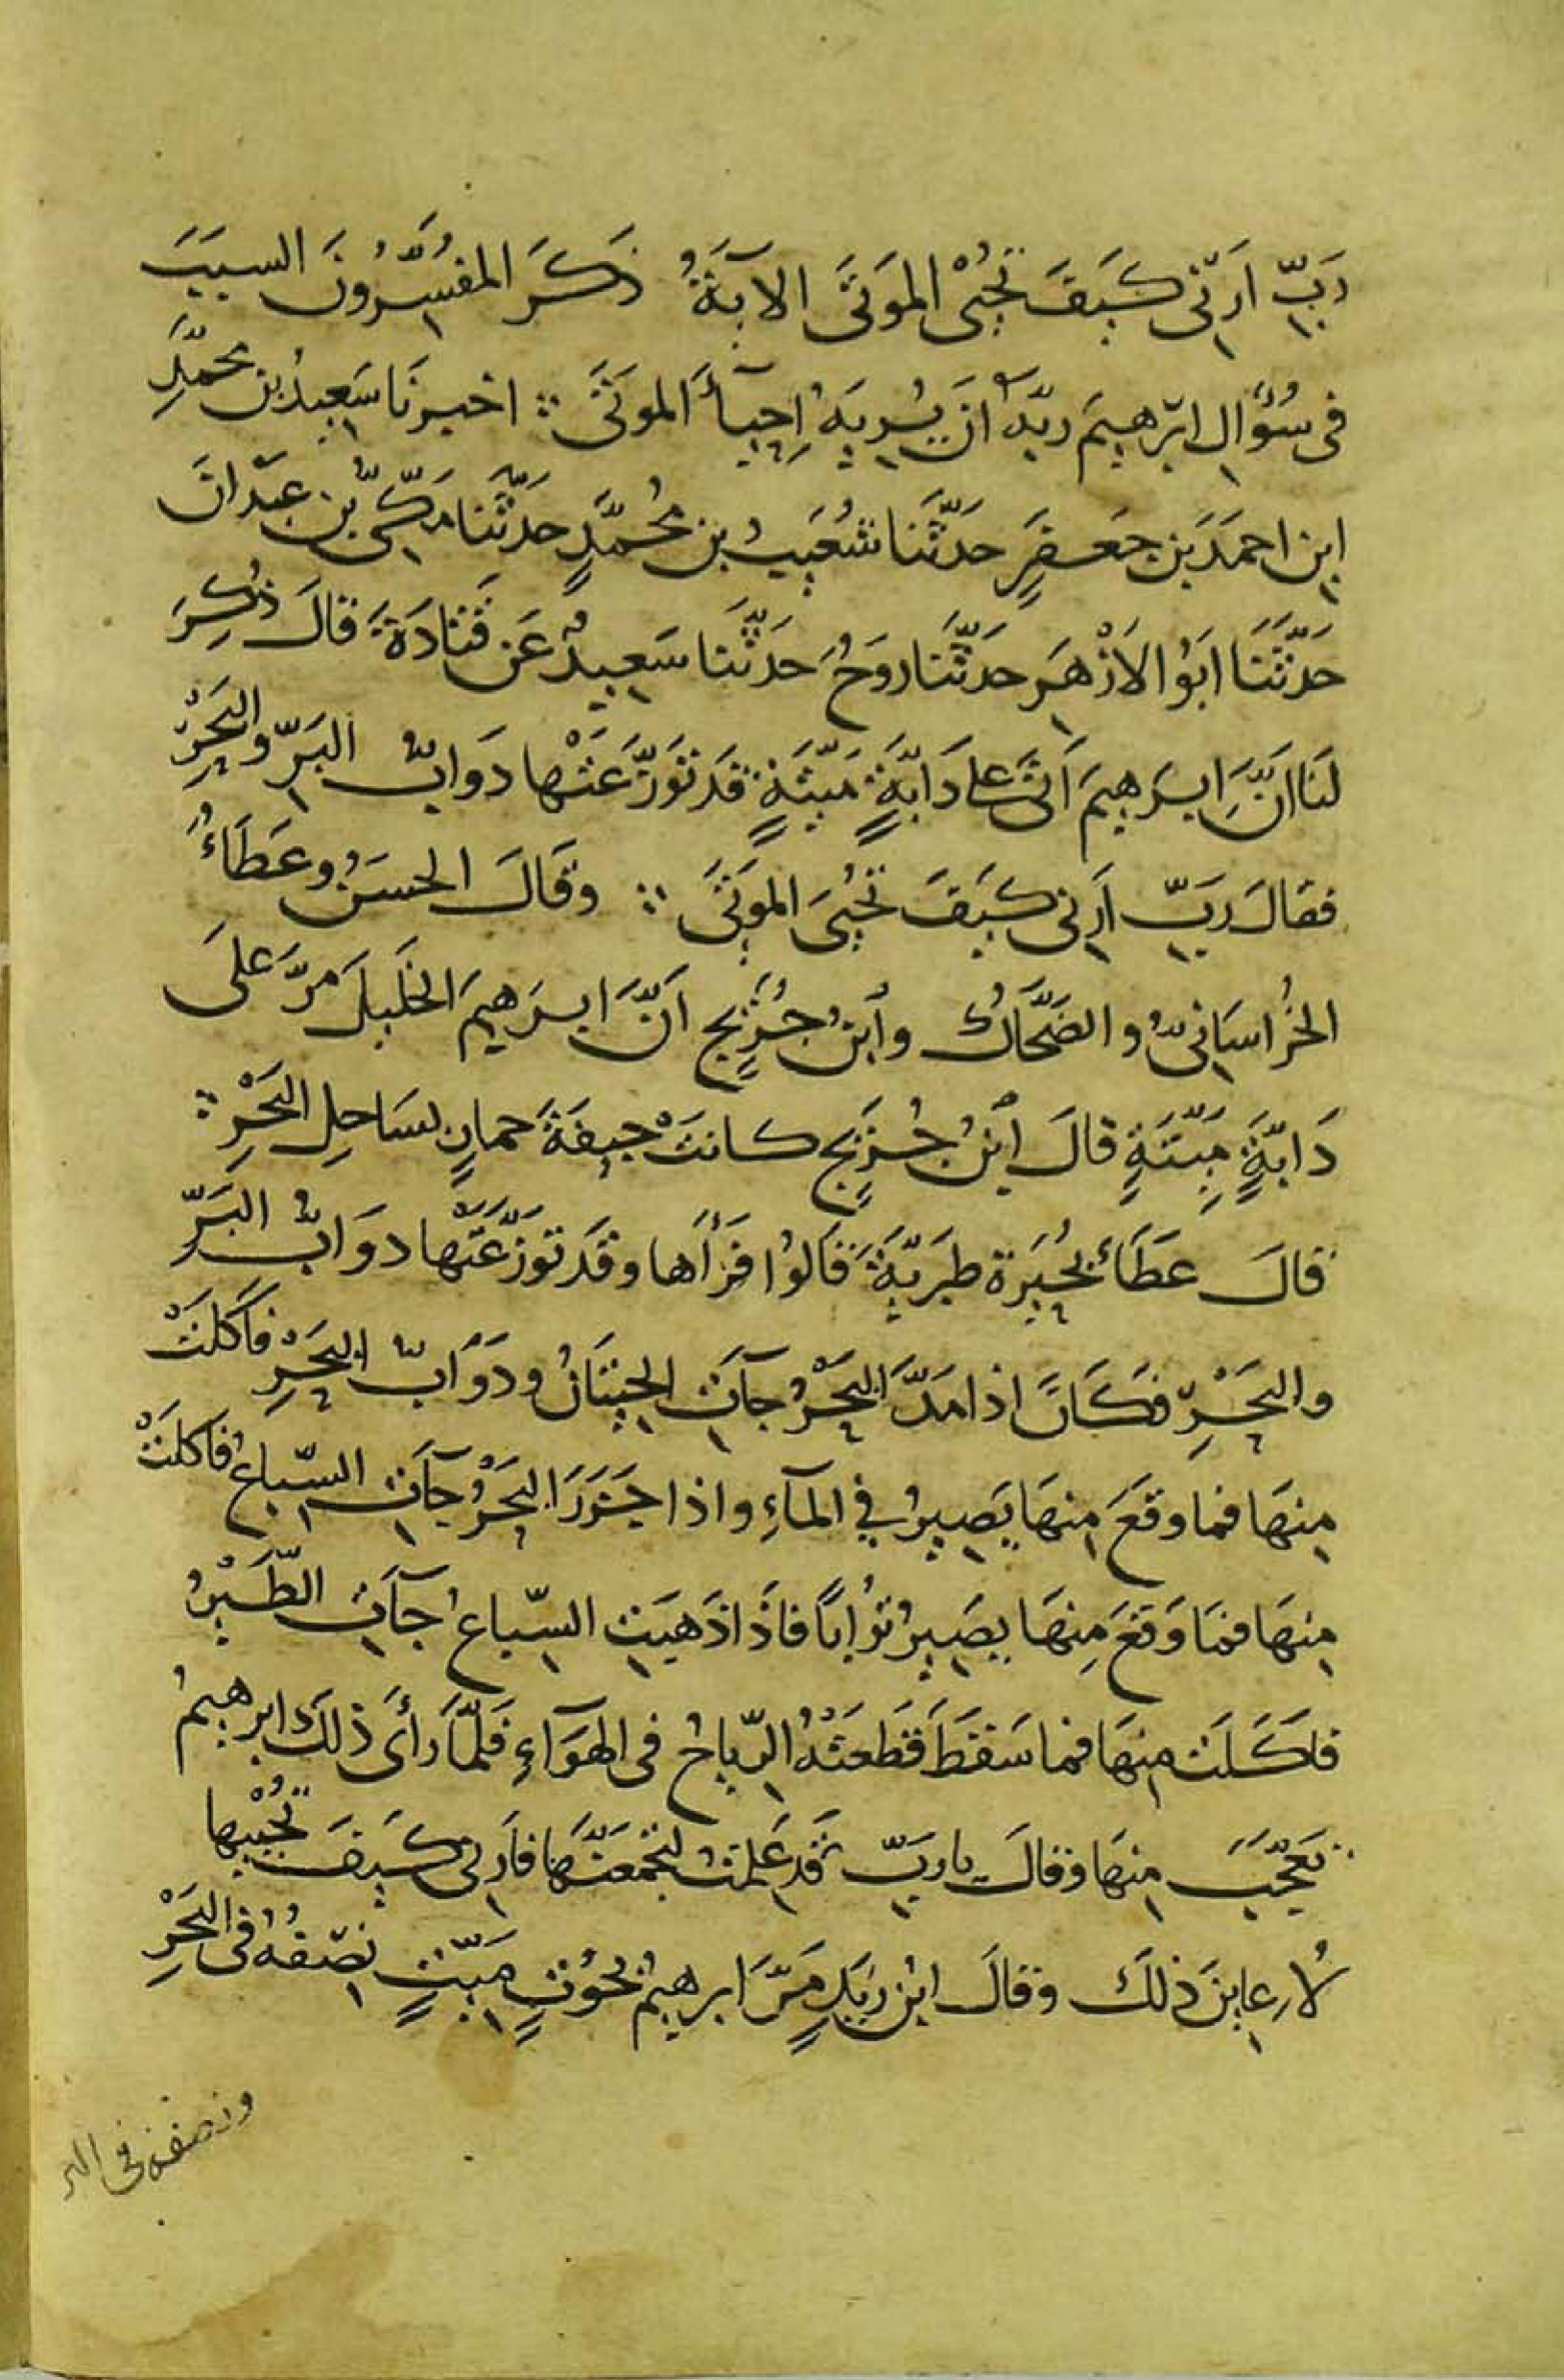 رَبِّ اَرِنِى كَيْفَ تُحْيِى المَوْتَى الآيَةُ ذَكَرَ المفُسِّرُونَ السبَبَ
فى سُؤالِ ابرٰهيمَ ربَّهُ اَنْ يُرِيَهُ اِحيآءَ الموتَى ؞ اخبرنَا سَعِيدُ بن محمَّدِ
ابنِ احمَدَ بنِ جَعفَرٍ حدَّثَنا شُعَيبُ بن مُحمَّدٍ حدَّثَنَا مَكّىُّ بن عَبْدانَ
حَدَّثَنَا ابَوُ الاَزْهَرِ حدَّثَنَا رَوحُ حَدَّثَنا سَعِيدُ عَن قَتادَةَ قالَ ذُكِرَ
لنَا انَّ ابرَهِيمَ اَتَى على دَابَّةٍ مَيِّتَةٍ قَد تَوَزَّعَتْها دَوَابُّ البَرِّ والبَحْرِ
فقالَ رَبِّ اَرِنى كَيفَ تُحْيىَ الموتَى ؞ وقَالَ الحسَنُ وعَطَاءُ
الخُراسَانىُّ والضَحَّاكُ وٱبنُ جُرَيجٍ انَّ ابرَهيمَ الخَليلَ مرَّ علَى
دَابَّةٍ مَيِّتَةٍ قالَ ٱبنُ جُرَيجٍ كانتْ جِيفَةَ حمارٍ بسَاحِلِ البَحْرِ ؞
قالَ عَطَاءُ بُحَيْرَة طبَرِيَّةَ قَالُوُا فَرَأَها وقَد تَوَزَّعَتْها دوَابُّ البَرِّ
والبَحْرِ فكَانَ اذا مَدَّ البَحْرُ جآتِ الحِيتَانُ ودَوَابُّ البَحْرِ فاَكَلَتْ
مِنهَا فما وقعَ مِنهَا يَصِيرُ فِي المآءِ واذا جَزَرَ البَحْرُ جآتِ السِّباعُ فاكلَتْ
مِنهَا فمَا وَقَعَ مِنهَا يصِيرُ تُرُاباً فَاذَا ذَهبَتِ السِّباعُ جآتِ الطَّيْرُ
فاَكَلَت مِنهَا فما سَقَطَ قَطَعَتْهُ الرِّياحُ فى الهَوَآءِ فَلمَّا رَأىَ ذٰلكَ ابرهيمُ
تَعجَّبَ مِنهَا وقالَ يا ربِّ قَد عَلِمتُ لتَجْمَعَنَّهَا فاَرِنى كَيفَ تُحْيِيها
لاُعايِنَ ذٰلكَ وقالَ ابْن زَيدٍ مَرَّ ابرهيمُ بحُوتٍ مَيّتٍ نصِفُهُ فى البَحْرِ
ونصفه فى البر